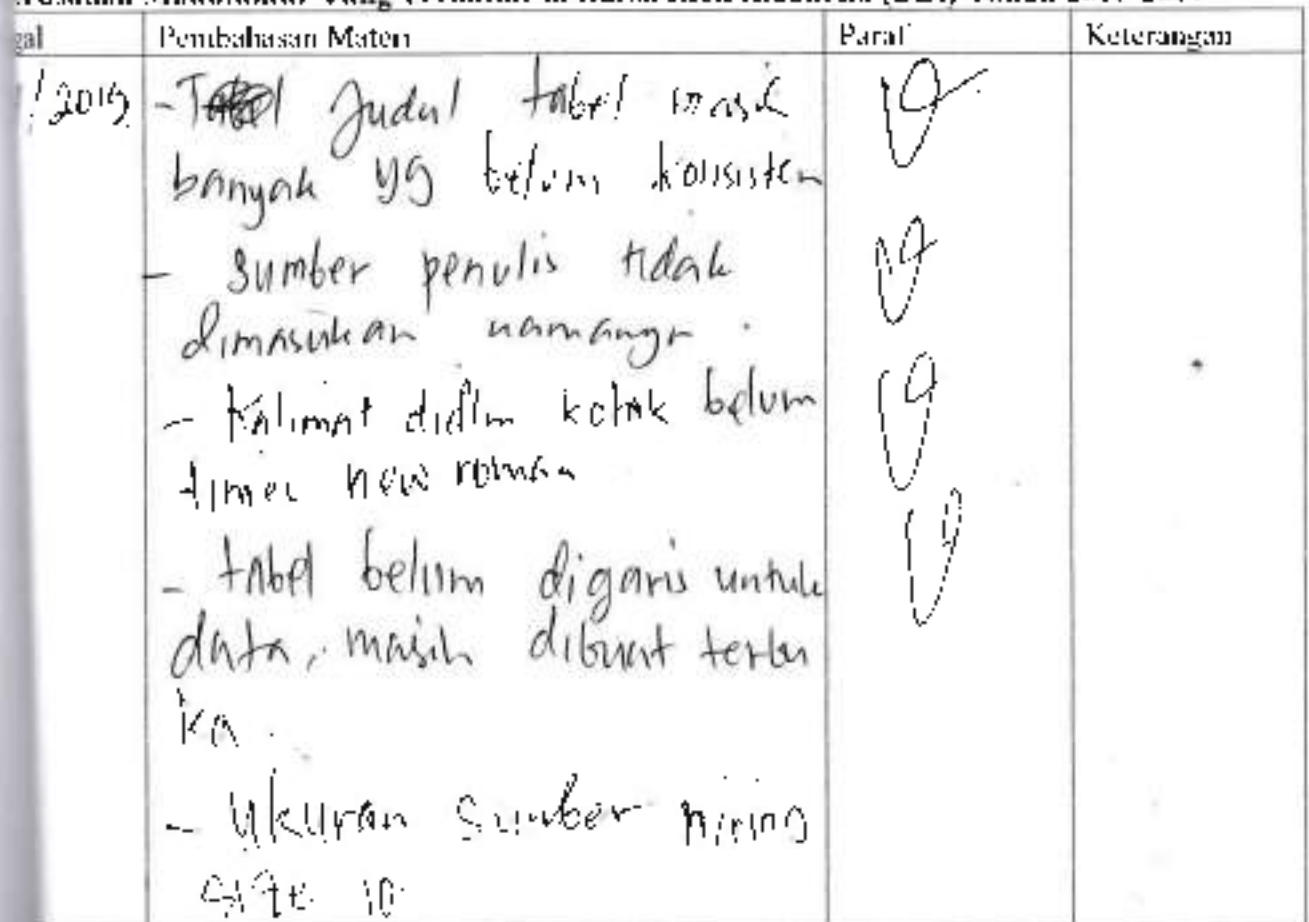 Yang Terdaftar di Bursa Efek Indonesia (BEI) Tahun
gal Pembahasan Materi Paraf Keterangan
/2019 - Judul tabel masih
banyak yg belum konsisten
- Sumber penulis tidak
dimasukan namanya.
- Kalimat didlm kotak belum
times new roman
- tabel belum digaris untuk
data, masih dibuat terbu
ka.
- Ukuran Sumber miring
size 10